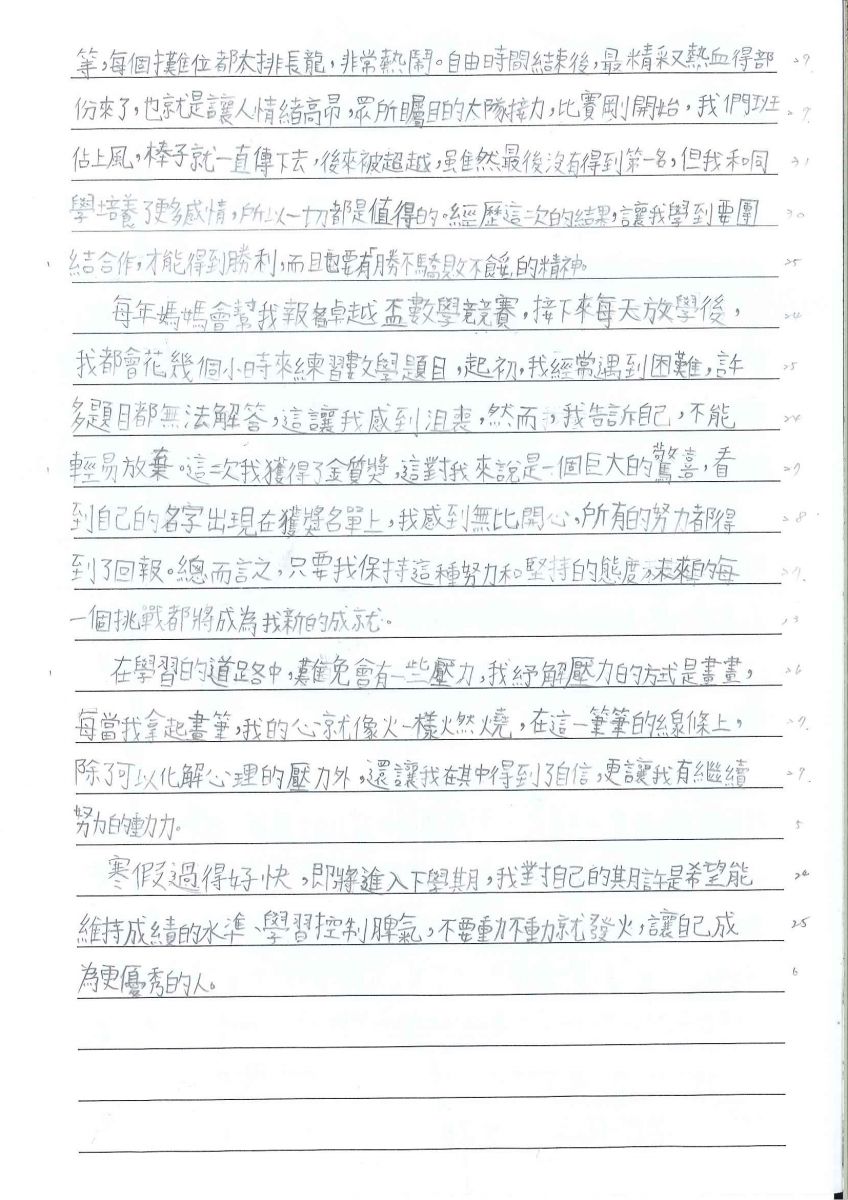 等,每個攤位都大排長龍,非常熱鬧。自由時間結束後,最精采又熱血得部 29
份來了,也就是讓人情緒高昂,眾所矚目的大隊接力,比賽剛開始,我們班
佔上風,棒子就一直傳下去,後來被超越,雖然最後沒有得到第一名,但我和同 31
學培養了更多感情,所以一切都是值得的。經歷這次的結果,讓我學到要團 30
結合作,才能得到勝利,而且也要有「勝不驕敗不餒」的精神。 25
每年媽媽會幫我報名卓越盃數學競賽,接下來每天放學後, 24
我都會花幾個小時來練習數學題目,起初,我經常遇到困難,許 25
多題目都無法解答,這讓我感到沮喪,然而,我告訴自己,不能 24
輕易放棄。這次我獲得了金質獎,這對我來說是一個巨大的驚喜,看 27
到自己的名字出現在獲獎名單上,我感到無比開心,所有的努力都得 28
到了回報。總而言之,只要我保持這種努力和堅持的態度,未來的每
一個挑戰都將成為我新的成就。 13
在學習的道路中,難免會有一些壓力,我紓解壓力的方式是畫畫, 26
每當我拿起畫筆,我的心就像火一樣燃燒,在這一筆筆的線條上, 27
除了可以化解心理的壓力外,還讓我在其中得到了自信,更讓我有繼續 29
努力的動力。 5
寒假過得好快,即將進入下學期,我對自己的期許是希望能 24
維持成績的水準、學習控制脾氣,不要動不動就發火,讓自己成 25
為更優秀的人。 6